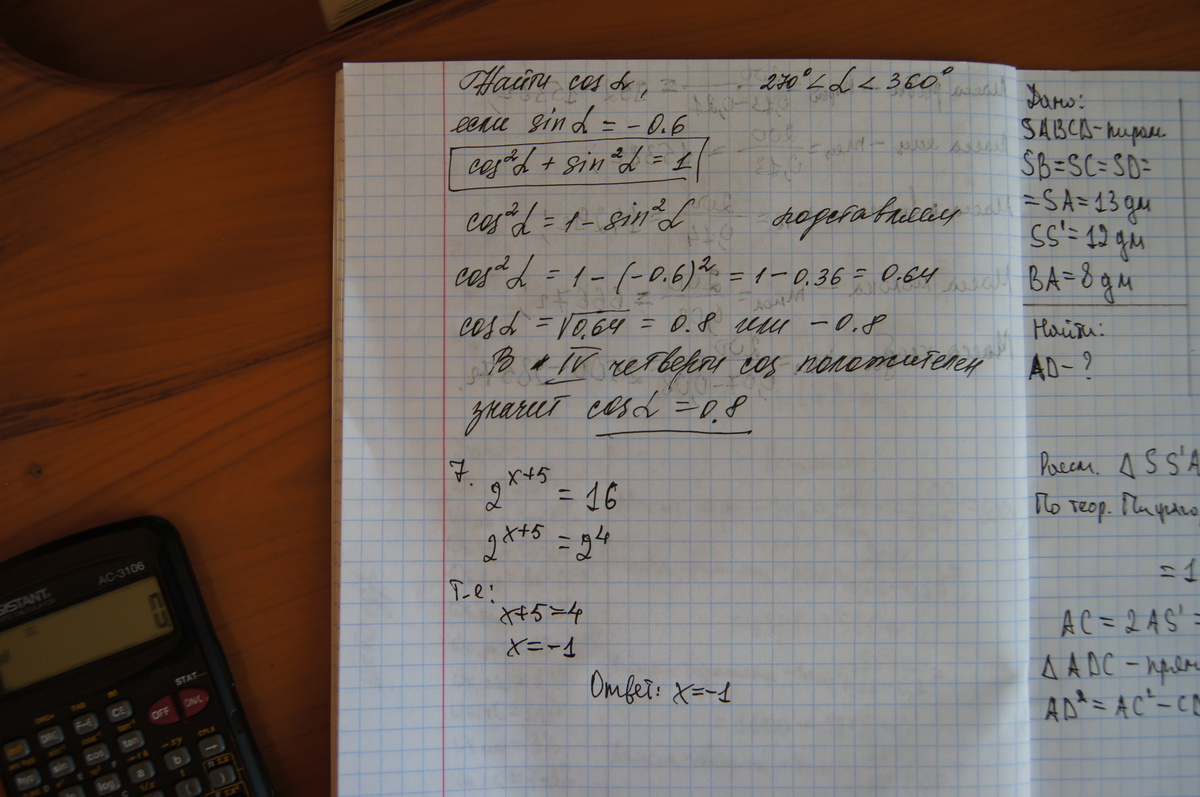 Найти cos α, 270° < α < 360°
если sin α = -0.6
cos²α + sin²α = 1
cos²α = 1 - sin²α подставляем
cos²α = 1 - (-0.6)² = 1 - 0.36 = 0.64
cos α = √0,64 = 0.8 или -0.8
В IV четверти cos положителен
значит cos α = 0.8
7.
2^(x+5) = 16
2^(x+5) = 2^4
Т-е:
x+5=4
x=-1
Ответ: x=-1
Дано:
SABCD-пирам.
SB=SC=SD=
=SA=13 дм
SS'=12 дм
BA=8 дм
Найти:
AD-?
Рассм. Δ SS'A
По теор. Пифаго
= 1
AC = 2AS' =
Δ ADC - прям
AD² = AC² - CD
AC-3106
SISTANT
STAT
OFF
ON/C
CE
DRG
F↔E
hyp
sin
cos
tan
log
a
b